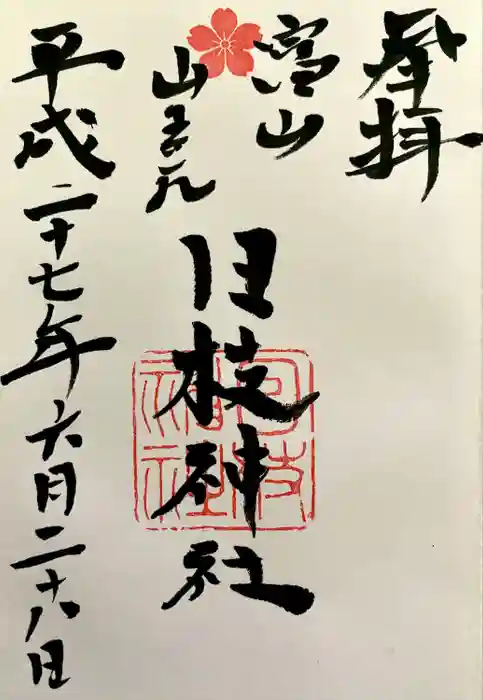 奉拝
富山
山王さん
日枝神社
日枝神社
平成二十七年六月二十八日